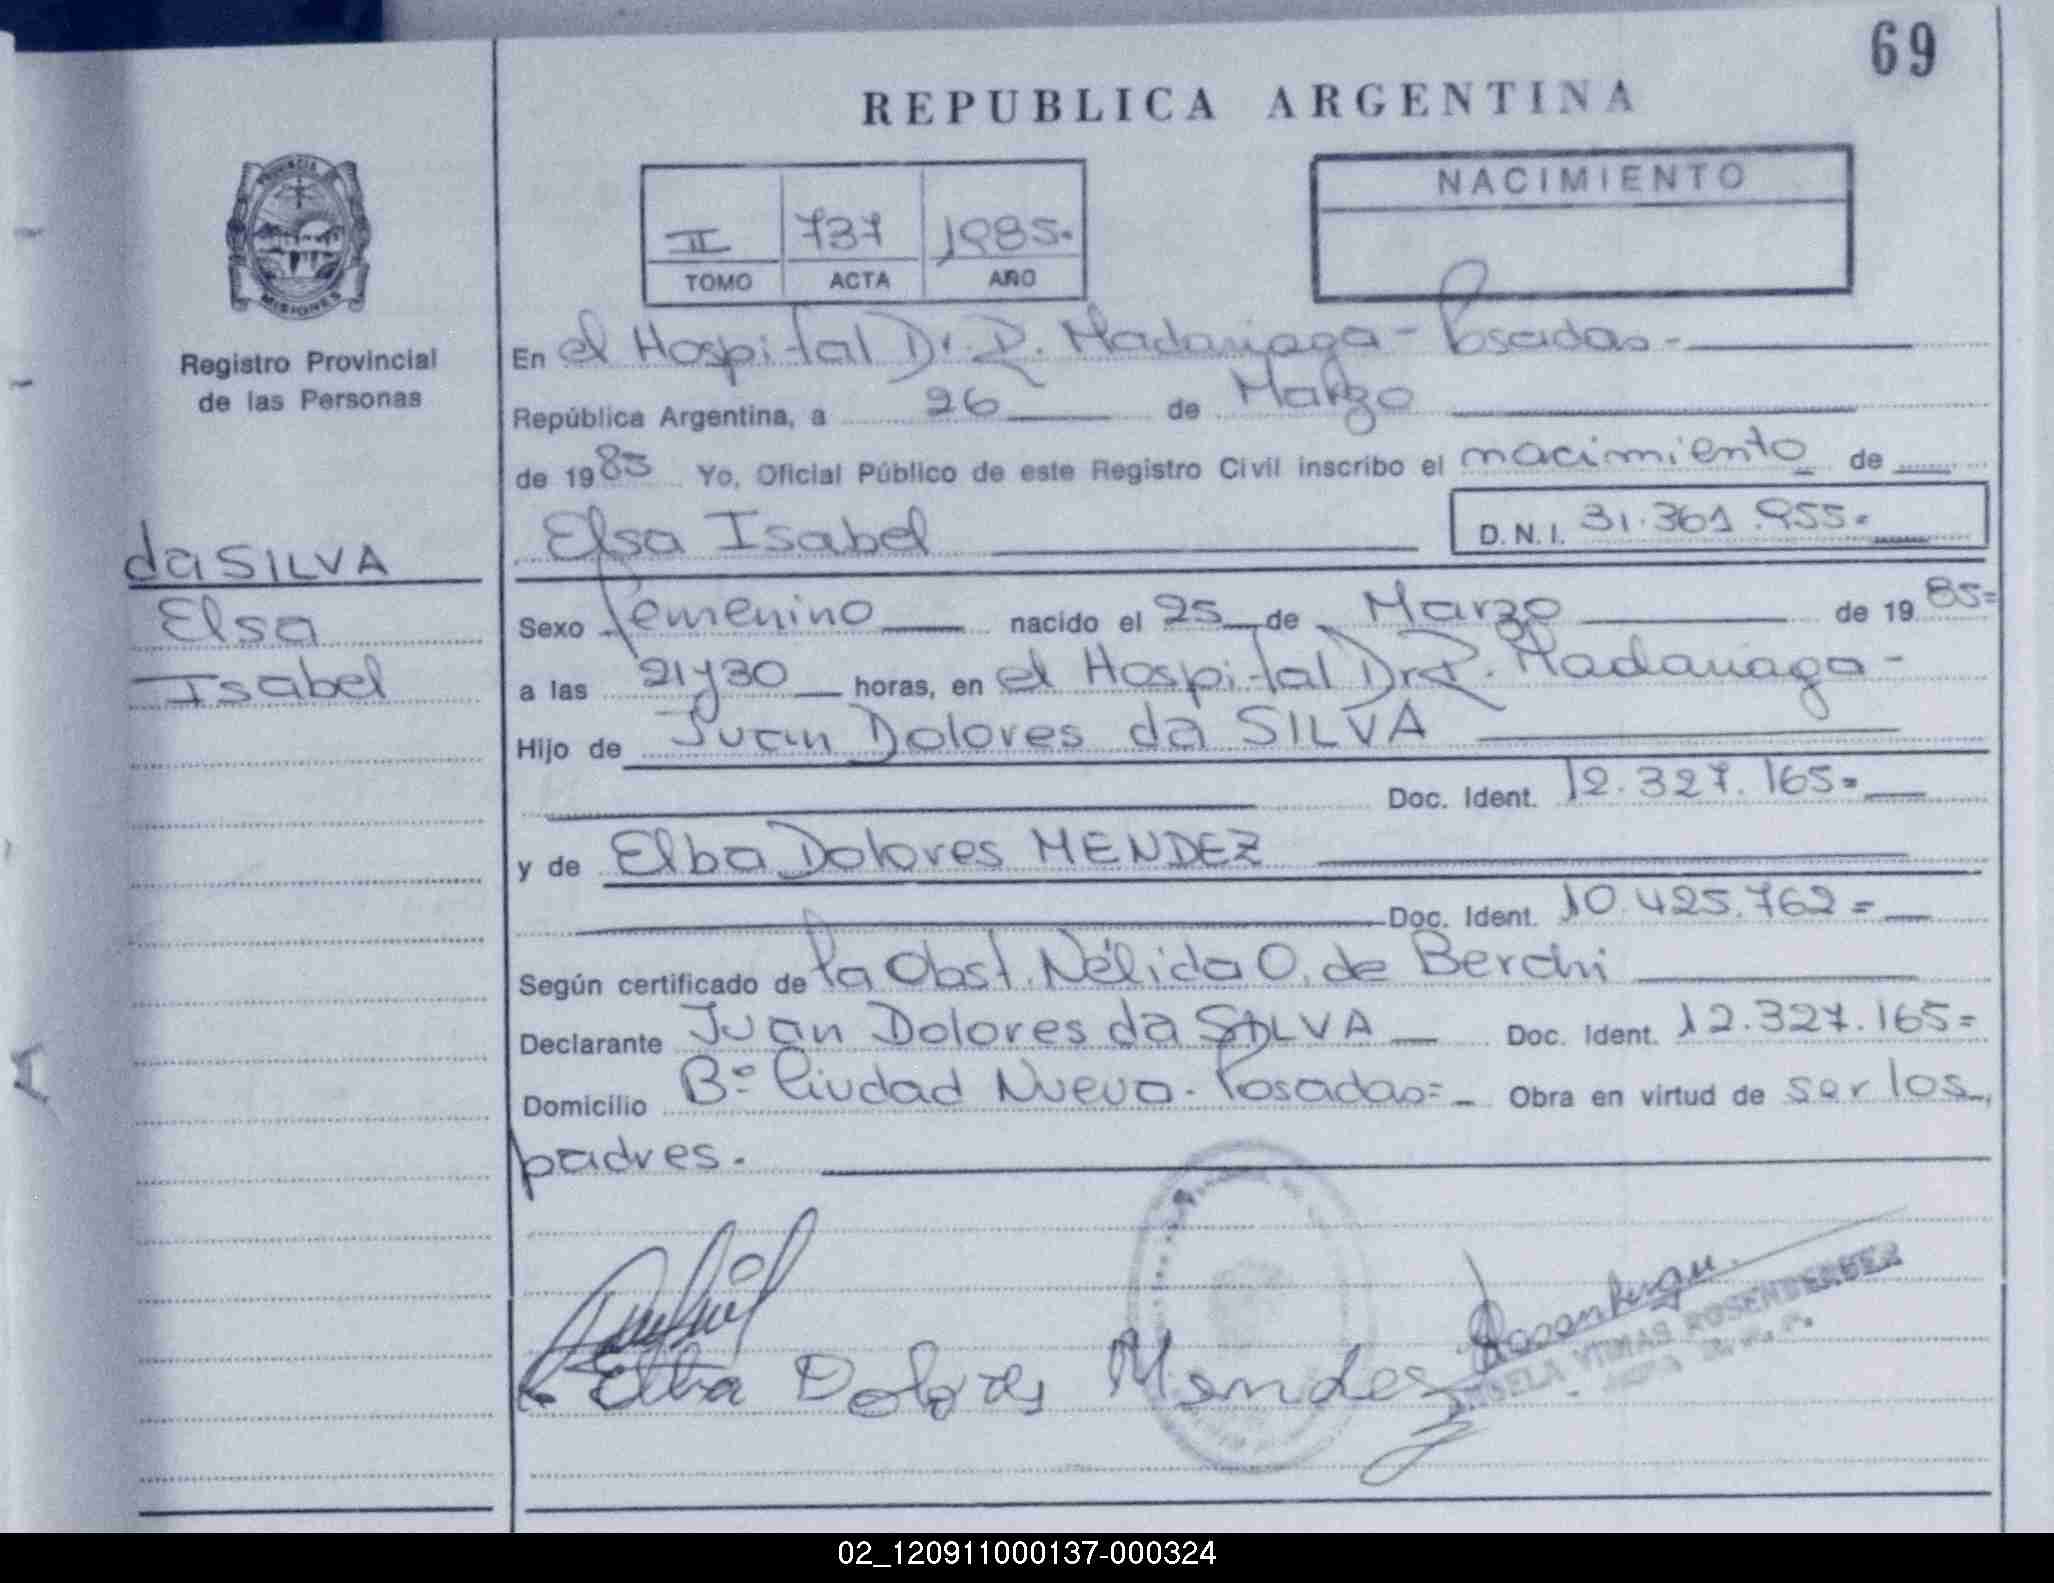 69
REPUBLICA ARGENTINA
PROVINCIA DE
MISIONES
Registro Provincial
de las Personas
II 737 1985.
TOMO ACTA AÑO
NACIMIENTO
En el Hospital Dr. R. Madariaga - Posadas.-
República Argentina, a 26 de Marzo
de 1985 Yo, Oficial Público de este Registro Civil inscribo el nacimiento de
Elsa Isabel D.N.I. 31.361.955.
da SILVA
Elsa
Isabel
Sexo femenino nacido el 25 de Marzo de 1985=
a las 21y30 horas, en el Hospital Dr. R. Madariaga -
Hijo de Juan Dolores da SILVA
Doc. Ident. 12.327.165=
y de Elba Dolores MENDEZ
Doc. Ident. 10.425.762=
Según certificado de la Obst. Nélida O. de Berchi
Declarante Juan Dolores da SILVA Doc. Ident. 12.327.165=
Domicilio Bº Ciudad Nueva - Posadas= Obra en virtud de ser los
padres.
Elba Dolores Mendez
Rosenberger
ROSENBERGER
02_120911000137-000324